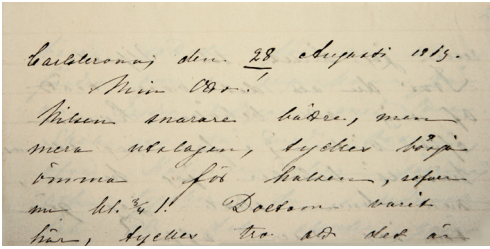 Carlskrona den 28 Augusti
Min Otto!
Nilsen snarare bättre, men
mera utslagen, tyckes börja
ömma för halsen, sofver
nu kl. 3/4 1. Doctorn varit
här, tyckes tro att det är